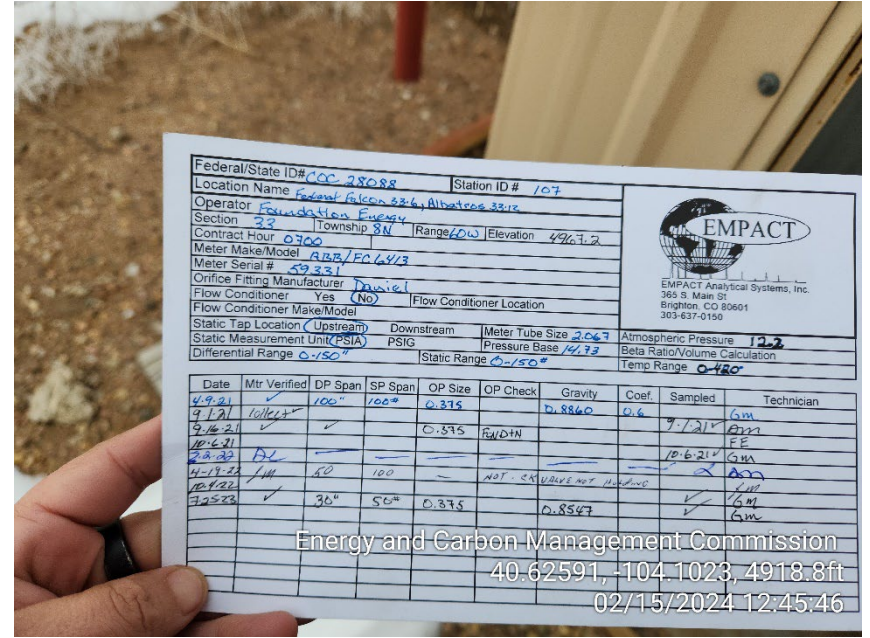 Federal/State ID# COC 28088 Station ID # 107
Location Name Federal Falcon 33-6, Albatros 33-12
Operator Foundation Energy
Section 33 Township 8N Range 60W Elevation 4967.2
Contract Hour 0700
Meter Make/Model ABB/FC 6413
Meter Serial # 59331
Orifice Fitting Manufacturer Daniel
Flow Conditioner Yes No Flow Conditioner Location
Flow Conditioner Make/Model
Static Tap Location Upstream Downstream Meter Tube Size 2.067 Atmospheric Pressure 12.2
Static Measurement Unit PSIA PSIG Pressure Base 14.73 Beta Ratio/Volume Calculation
Differential Range 0-150" Static Range 0-150# Temp Range 0-420°
EMPACT
EMPACT Analytical Systems, Inc.
365 S. Main St
Brighton, CO 80601
303-637-0150
Date Mtr Verified DP Span SP Span OP Size OP Check Gravity Coef. Sampled Technician
4.9.21 ✓ 100" 100# 0.375 0.8860 0.6 Gm
9.1.21 collect 9.1.21✓ Am
9.16.21 ✓ ✓ 0.375 FUND+N FE
10.6.21 10.6.21✓ Gm
2.2.22 Am
4-19-22 50 100 — NOT - CK VALVE NOT HOLDING
10.4.22 ✓ Gm
7.25.23 ✓ 30" 50# 0.375 0.8547 ✓ Gm
Energy and Carbon Management Commission
40.62591, -104.1023, 4918.8ft
02/15/2024 12:45:46